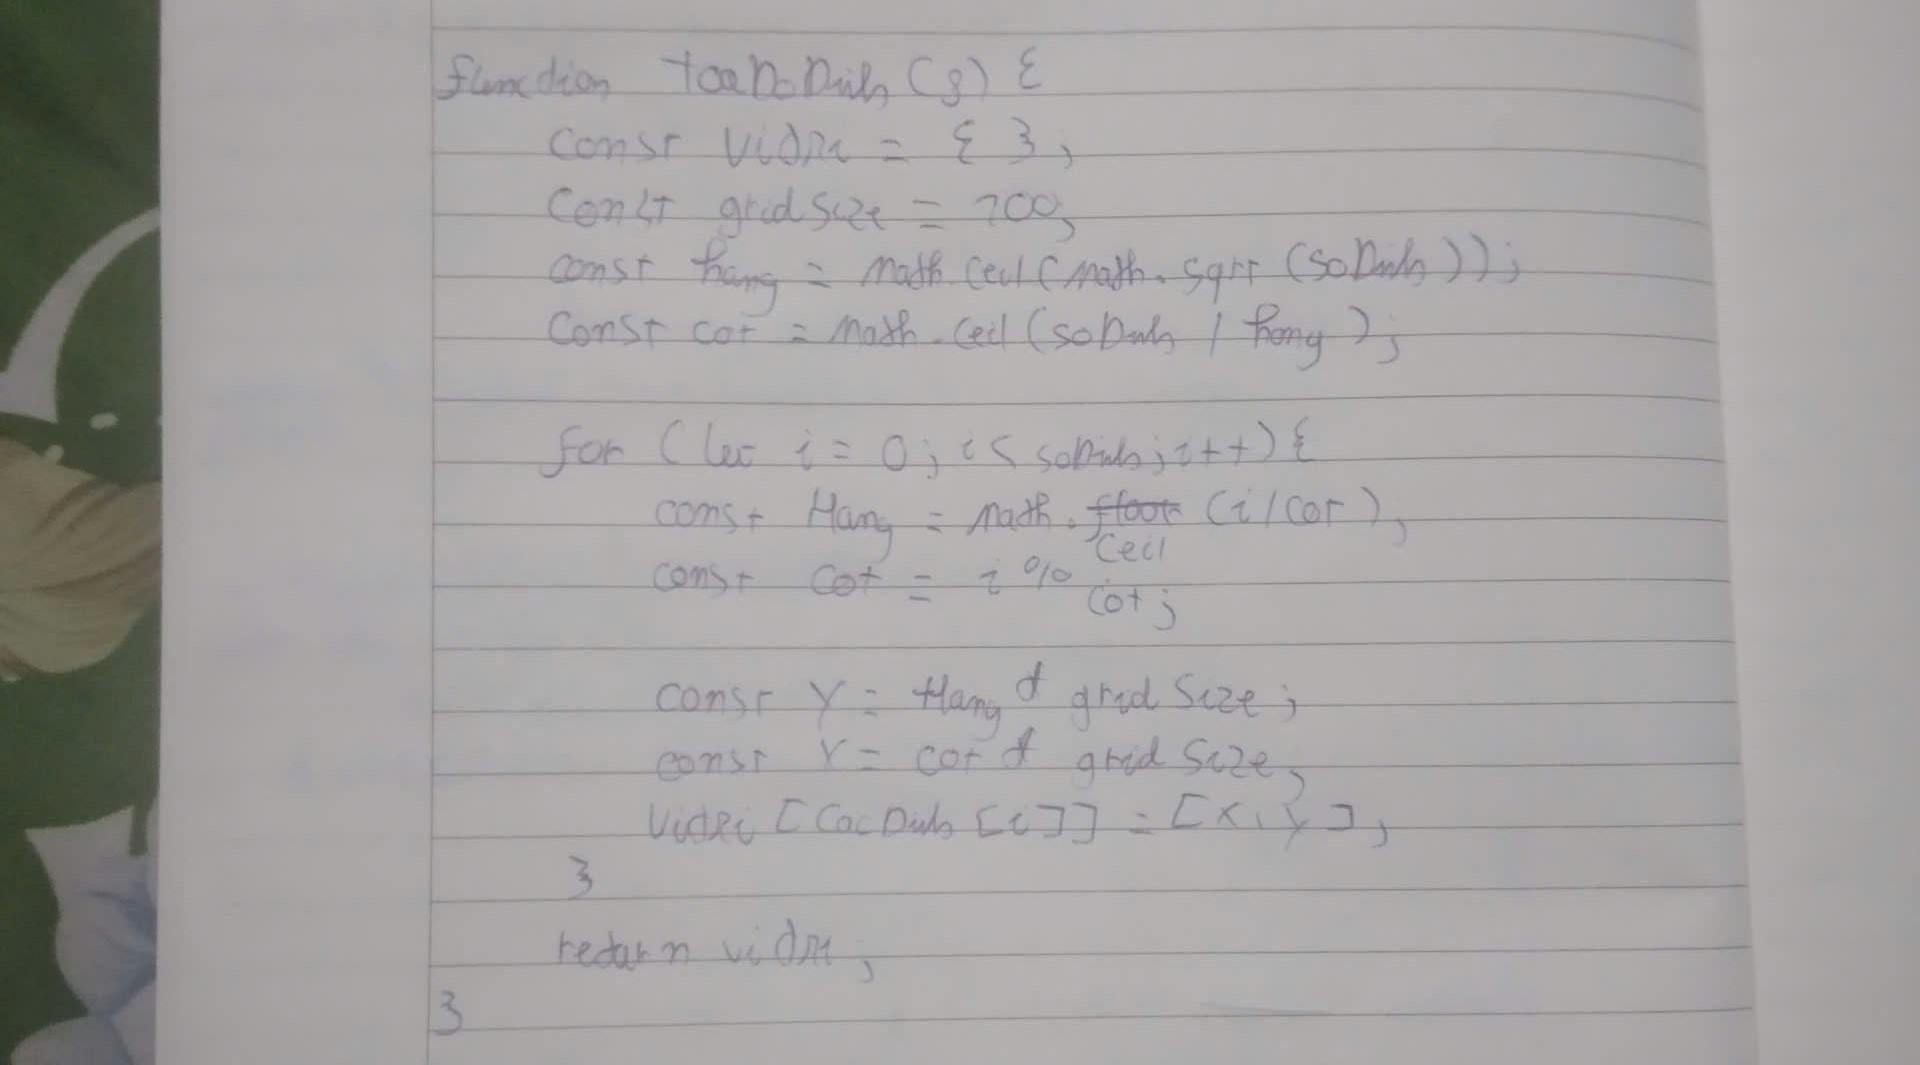 function toaDoDinh (g) {
const viTri = { };
const gridSize = 100;
const hang = math.ceil (math.sqrt (soDinh));
const cot = math.ceil (soDinh / hang);
for (let i = 0; i < soDinh; i++) {
const Hang = math. ceil (i/cot);
const Cot = i % cot;
const Y = Hang * gridSize;
const X = cot * gridSize;
viTri [CacDinh [i]] = [X, Y];
}
return viTri;
}